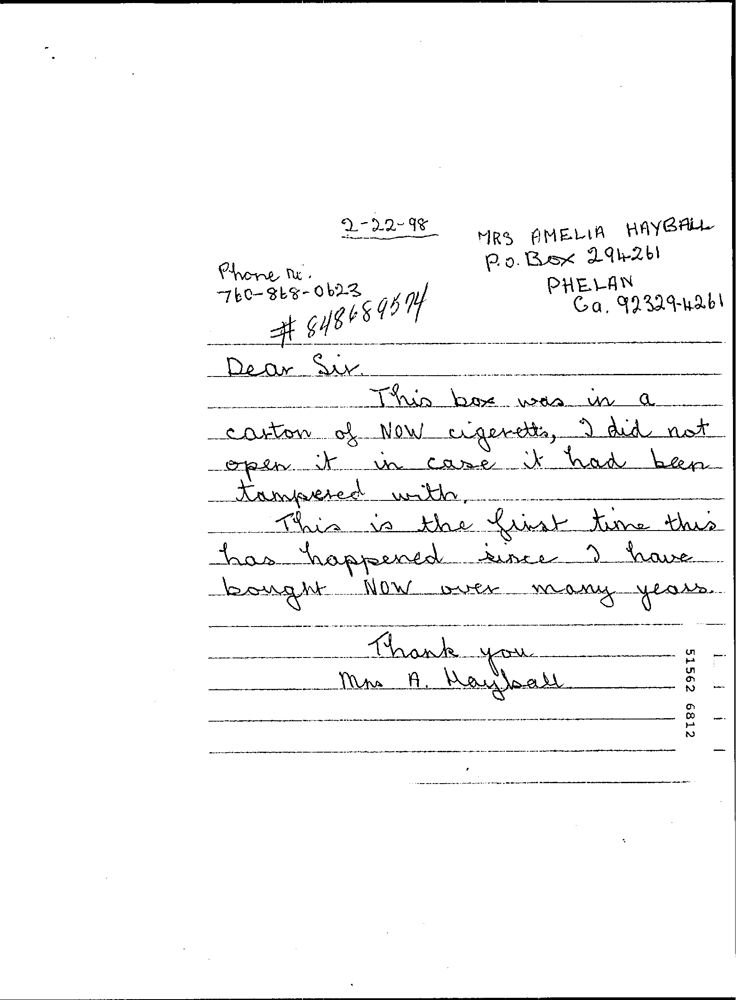 2-22-98
MRS AMELIA HAYBALL
P.O. Box 294261
PHELAN
Ca. 92329-4261
Phone Nr.
760-868-0623
# 848689574
Dear Sir.
This box was in a
carton of NOW cigeretts, I did not
open it in case it had been
tampered with.
This is the first time this
has happened since I have
bought NOW over many years.
Thank you
Mrs A. Hayball
51562 6812